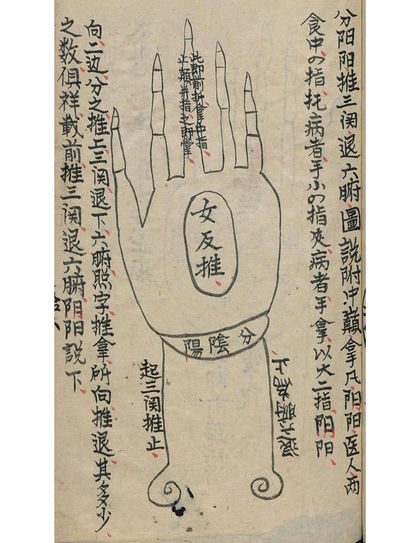 分阴阳推三関退六腑圖說附中巔拿凡阴阳医人兩
食中の指托病者手小の指夾病者手拿以大二指阴阳
此即前
中指
女反推
分陰陽
退六腑
起三関推止
向二边分之推上三関退下六腑照字推拿所向推退其多少
之数俱祥載前推三関退六腑阴阳說下